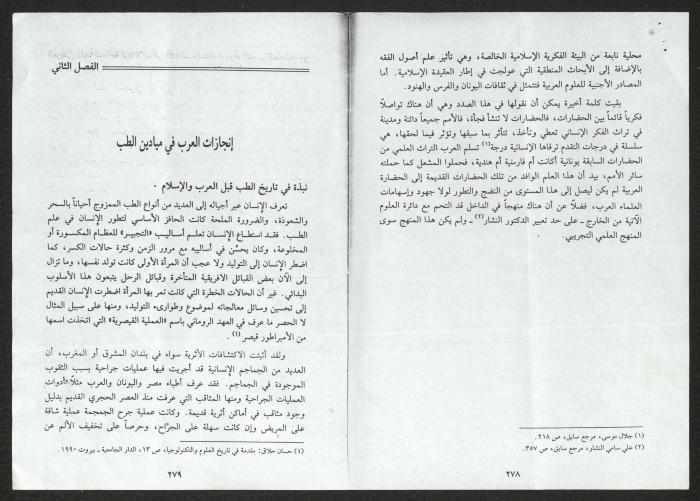 محلية نابعة من البيئة الفكرية الإسلامية الخالصة، وهي تأثير علم أصول الفقه
بالإضافة إلى الأبحاث المنطقية التي عولجت في إطار العقيدة الإسلامية. أما
المصادر الأجنبية للعلوم العربية فتتمثل في ثقافات اليونان والفرس والهنود.
بقيت كلمة أخيرة يمكن أن نقولها في هذا الصدد وهي أن هناك تواصلاً
فكرياً قائماً بين الحضارات، فالحضارات لا تنشأ فجأة، فالأمم جميعاً دائنة ومدينة
في تراث الفكر الإنساني تعطي وتأخذ، تتأثر بما سبقها وتؤثر فيما لحقها، هي
سلسلة في درجات التقدم ترقاها الإنسانية درجة(١) تسلم العرب التراث العلمي من
الحضارات السابقة يونانية أكانت أم فارسية أم هندية، فحملوا المشعل كما حملته
سائر الأمم، بيد أن هذا العلم الوافد من تلك الحضارات القديمة إلى الحضارة
العربية لم يكن ليصل إلى هذا المستوى من النضج والتطور لولا جهود وإسهامات
العلماء العرب، فضلاً عن أن هناك منهجاً في الداخل قد التحم مع دائرة العلوم
الآتية من الخارج ـ على حد تعبير الدكتور النشار(٢) ـ ولم يكن هذا المنهج سوى
المنهج العلمي التجريبي.
(١) جلال موسى، مرجع سابق، ص ٢١٨.
(٢) علي سامي النشار، مرجع سابق، ص ٣٥٧.
٢٧٨
الفصل الثاني
إنجازات العرب في ميادين الطب
نبذة في تاريخ الطب قبل العرب والإسلام
تعرف الإنسان عبر أجياله إلى العديد من أنواع الطب الممزوج أحياناً بالسحر
والشعوذة، والضرورة الملحة كانت الحافز الأساسي لتطور الإنسان في علم
الطب. فقد استطاع الإنسان تعلم أساليب «التجبير» للعظام المكسورة أو
المخلوعة، وكان يحسّن في أساليبه مع مرور الزمن وكثرة حالات الكسر، كما
اضطر الإنسان إلى التوليد ولا عجب أن المرأة الأولى كانت تولد نفسها، وما تزال
إلى الآن بعض القبائل الافريقية المتأخرة وقبائل الرحل يتبعون هذا الأسلوب
البدائي. غير أن الحالات الخطرة التي كانت تمر بها المرأة اضطرت الإنسان القديم
إلى تحسين وسائل معالجاته لموضوع وطوارىء التوليد، ومنها على سبيل المثال
لا الحصر ما عرف في العهد الروماني باسم «العملية القيصرية» التي اتخذت اسمها
من الأمبراطور قيصر(١).
ولقد أثبتت الاكتشافات الأثرية سواء في بلدان المشرق أو المغرب، أن
العديد من الجماجم الإنسانية قد أجريت فيها عمليات جراحية بسبب الثقوب
الموجودة في الجماجم. فقد عرف أطباء مصر واليونان والعرب مثلاً أدوات
العمليات الجراحية ومنها المثاقب التي عرفت منذ العصر الحجري القديم بدليل
وجود مثاقب في أماكن أثرية قديمة. وكانت عملية جرح الجمجمة عملية شاقة
على المريض وإن كانت سهلة على الجرّاح، وحرصاً على تخفيف الألم عن
(١) حسان حلاق: مقدمة في تاريخ العلوم والتكنولوجيا، ص ١٣، الدار الجامعية ـ بيروت ١٩٩٠.
٢٧٩